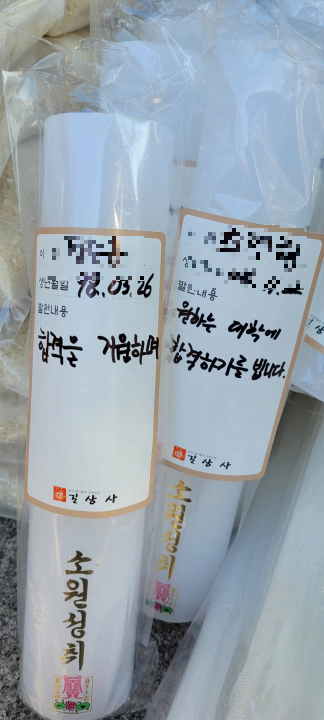 이
생년월일 98.03.26
발원내용
합격을 기원하며
길상사
소원성취
생
발원내용
원하는 대학에
합격하기를 빕니다.
길상사
소원성취